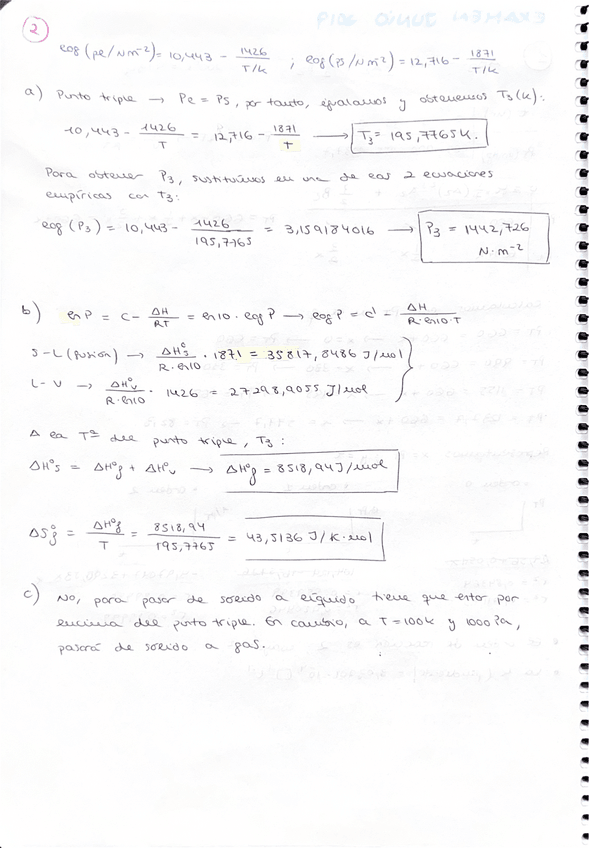 2
log (pe/Nm⁻²) = 10,443 - 1426/T/K ; log (ps/Nm⁻²) = 12,716 - 1871/T/K
a) Punto triple → Pe = Ps, por tanto, igualamos y obtenemos T₃(K):
10,443 - 1426/T = 12,716 - 1871/T → T₃ = 195,7765K.
Para obtener P₃, sustituimos en una de las 2 ecuaciones
empíricas con T₃:
log (P₃) = 10,443 - 1426/195,7765 = 3,159184016 → P₃ = 1442,726
N·m⁻²
b) lnP = C - ΔH/RT = ln10 · logP → logP = C' - ΔH/R·ln10·T
S-L (fusión) → ΔH°s/R·ln10 · 1871 = 35817,8486 J/mol
L-V → ΔH°v/R·ln10 · 1426 = 27298,9055 J/mol
Δ la Tª del punto triple, T₃:
ΔH°s = ΔH°f + ΔH°v → ΔH°f = 8518,94 J/mol
ΔS°f = ΔH°f/T = 8518,94/195,7765 = 43,5136 J/K·mol
c) No, para pasar de sólido a líquido tiene que estar por
encima del punto triple. En cambio, a T=100K y 1000Pa,
pasará de sólido a gas.